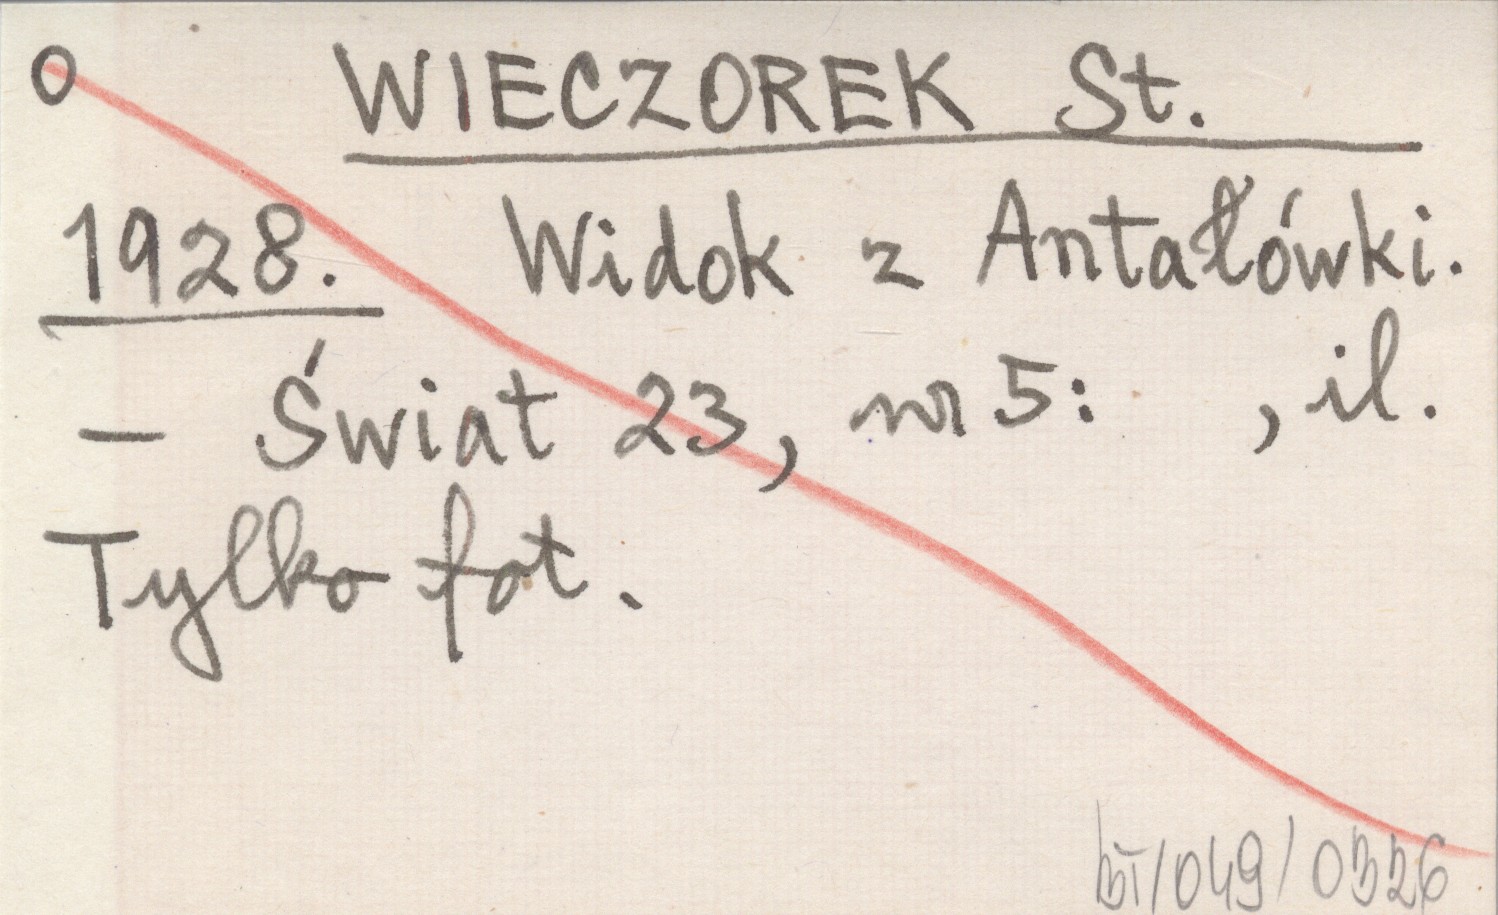 O WIECZOREK St.
1928. Widok z Antałówki.
- Świat 23, nr 5: , il.
Tylko fot.
bT/049/0326